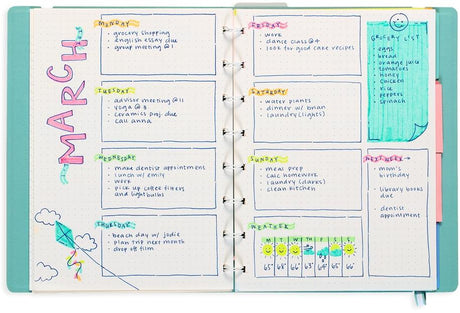 MARCH
MONDAY
• grocery shopping
• english essay due
• group meeting @1
TUESDAY
• advisor meeting @11
• yoga @8
• ceramics proj. due
• call anna
WEDNESDAY
• make dentist appointment
• lunch w/ emily
• work
• pick up coffee filters
and lightbulbs
THURSDAY
• beach day w/ jodie
• plan trip next month
• drop off film
FRIDAY
• work
• dance class @4
• look for good cake recipes
SATURDAY
• water plants
• dinner w/ brian
• laundry (lights)
SUNDAY
• meal prep
• calc homework
• laundry (darks)
• clean kitchen
WEATHER
M T W T F S S
65° 68° 66° 63° 64° 65° 66°
GROCERY LIST
• eggs
• bread
• orange juice
• tomatoes
• honey
• chicken
• rice
• peppers
• spinach
NEXT WEEK →
• mom's
birthday
• library books
due
• dentist
appointment